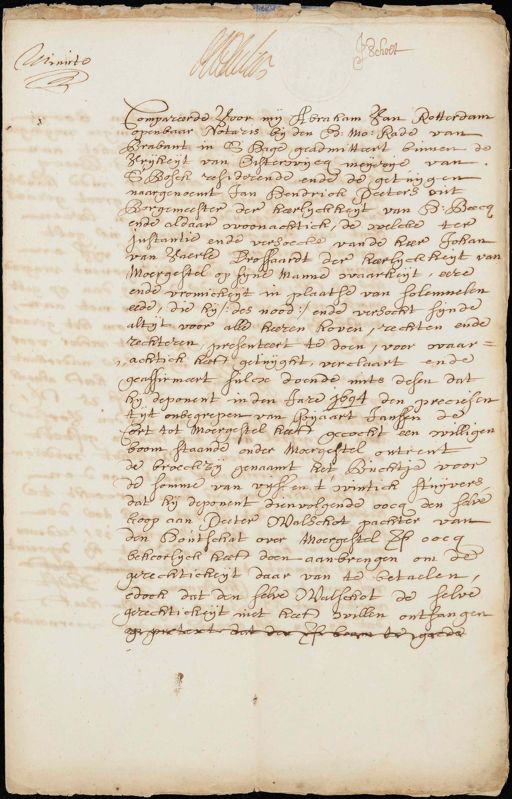 Minute
J Schoot
Compareerde Voor mij Abraham Van Rotterdam
openbaar Notaris bij den Ed: Mo: Rade van
Brabant in S Hage geadmitteert binnen de
Vrijheijt van Oisterwijcq meijerije van
S Bosch residerende ende de getuijgen
naargenoemt Jan Hendrick Peeters uit
Borgemeester der heerlijckheijt van
ende aldaar woonachtich, de welcke ter
Instantie ende versoecke vande heer Johan
van Baerle Drossaardt der heerlijckheijt van
Moergestel op sijne manne waarheijt, eere
ende vromicheijt in plaethe van solemnelen
eede, die hij /:des nood:/ ende versocht sijnde
altijt voor alle heeren hoven, rechten ende
rechteren, presenteert te doen, voor waar=
achtich heeft getuijght, verclaert ende
geaffirmeert sulcx doende mits desen dat
hij deponent inden Jare 1694 den precisen
tijt onbegrepen van Jansen de
Cort tot Moergestel heeft gecocht een willigen
boom staande onder Moergestel ontrent
de broeckzij genaamt het Bruchtje voor
de somme van vijff en t'wintich stuijvers
dat hij deponent dienvolgende oocq den selve
coop aan Peeter Walschot pachter van
den Houtschat over Moergestel oocq
behoorlijck heeft doen aanbrengen om de
gerechticheijt daar van te betaelen,
edoch dat den selve Walschot de selve
gerechticheijt niet heeft willen ontfangen